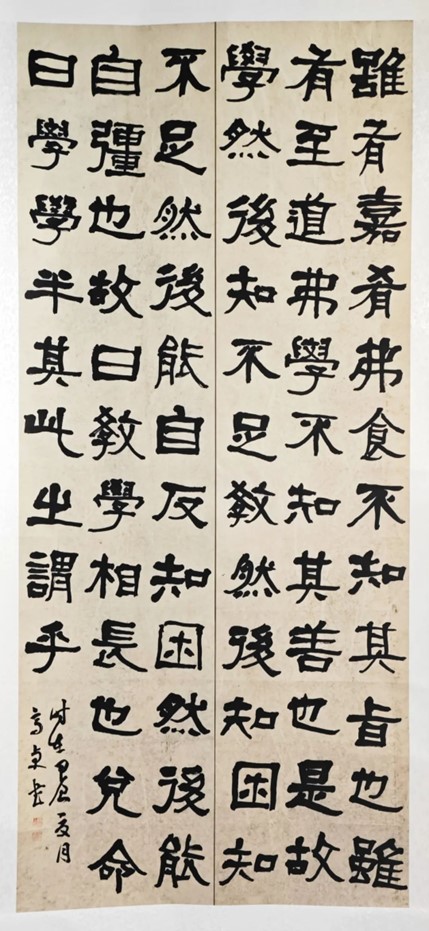 雖有嘉肴弗食不知其旨也雖
有至道弗學不知其善也是故
學然後知不足教然後知困知
不足然後能自反知困然後能
自彊也故曰教學相長也兌命
曰學學半其此之謂乎
时在甲辰夏月